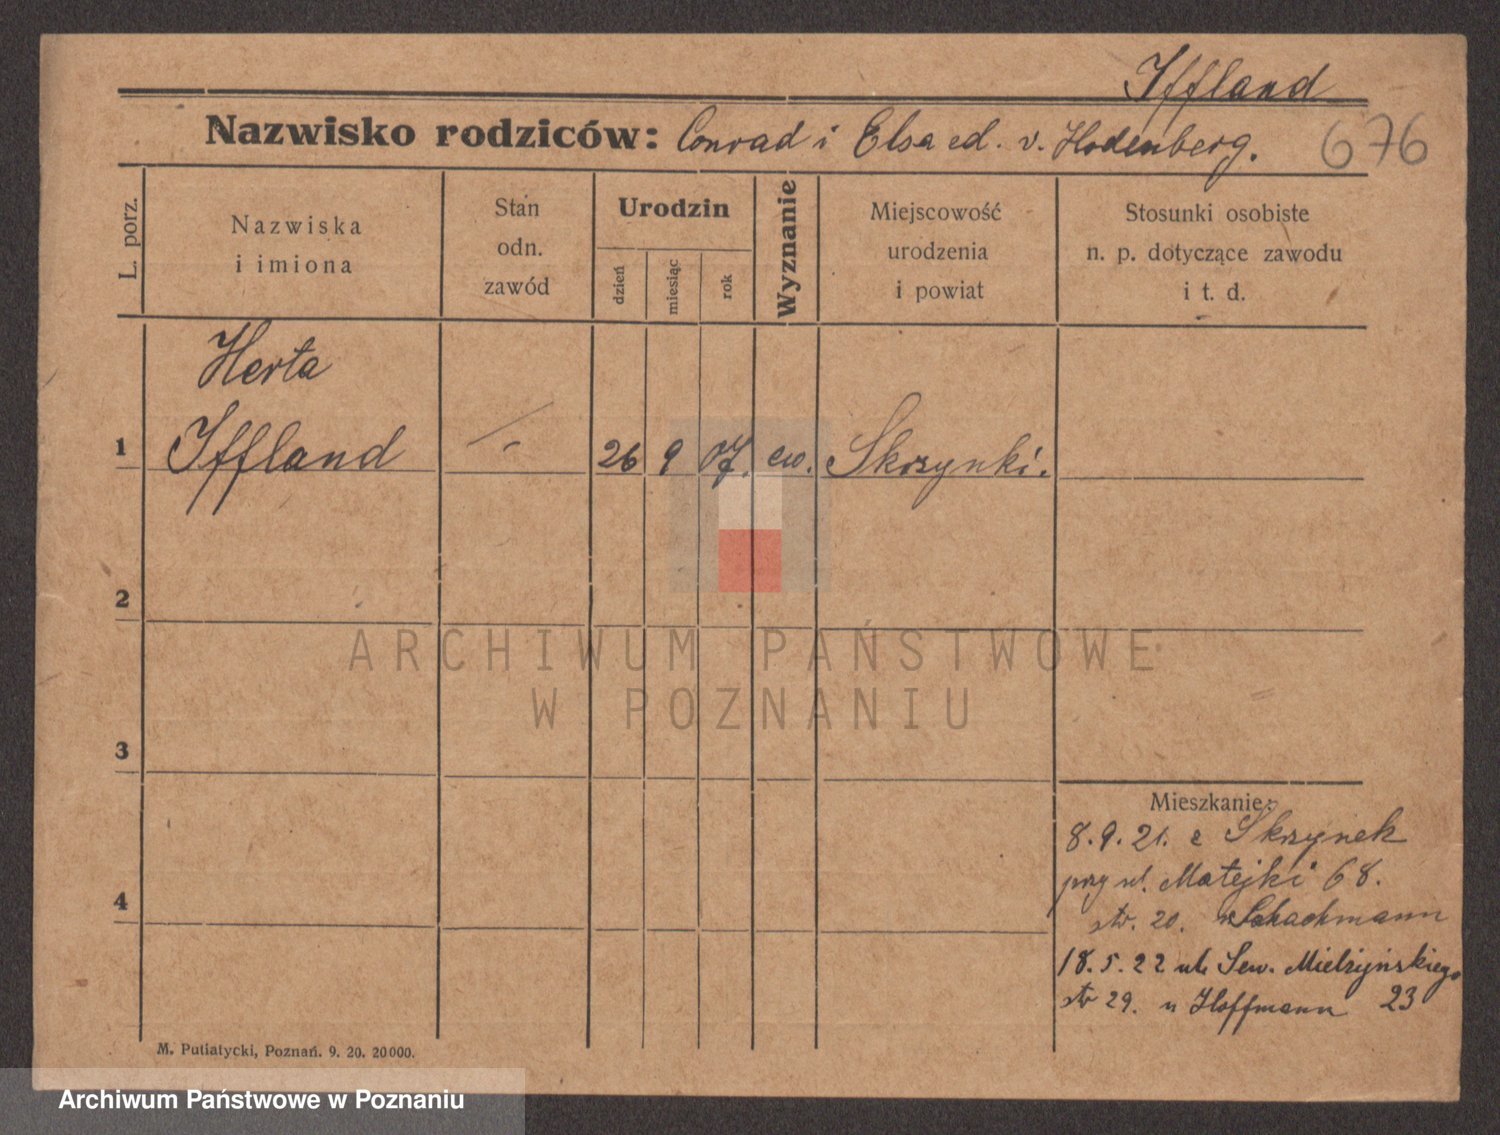 Iffland
Nazwisko rodziców: Conrad i Elsa ed. v. Hodenberg.
676
L. porz.
Nazwiska
i imiona
Stan
odn.
zawód
Urodzin
dzień
miesiąc
rok
Wyznanie
Miejscowość
urodzenia
i powiat
Stosunki osobiste
n. p. dotyczące zawodu
i t. d.
Herta
1 Iffland - 26 9 07. ew. Skrzynki.
2
3
4
Mieszkanie:
8.9.21. z Skrzynek
przy ul. Matejki 68.
str. 20. Schachmann
18.5.22 ul. Sew. Mielżyńskiego
str 29. u Hoffmann 23
M. Putiatycki, Poznań. 9. 20. 20000.
ARCHIWUM PAŃSTWOWE
W POZNANIU
Archiwum Państwowe w Poznaniu